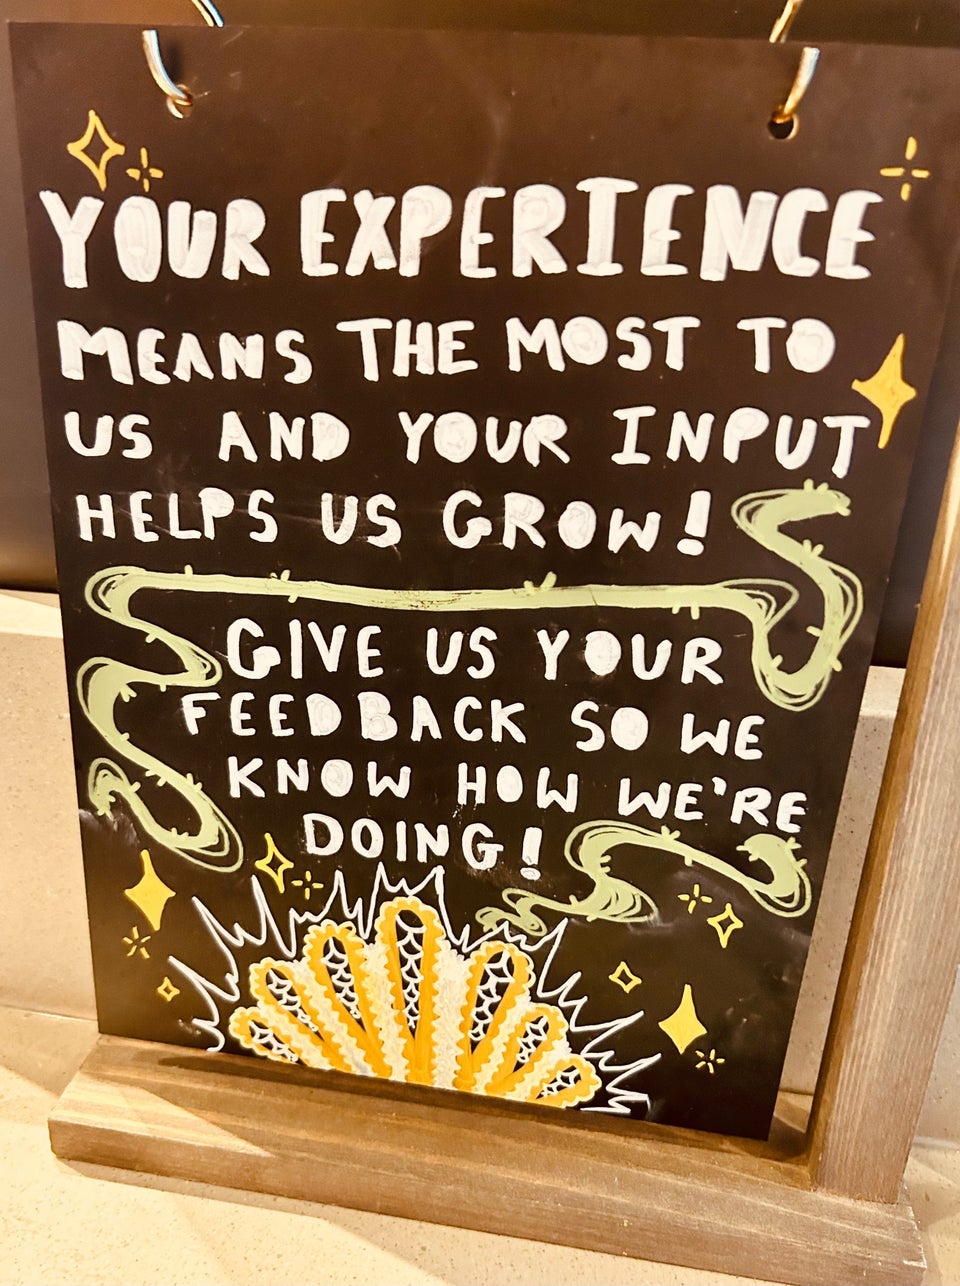 YOUR EXPERIENCE
MEANS THE MOST TO
US AND YOUR INPUT
HELPS US GROW!
GIVE US YOUR
FEEDBACK SO WE
KNOW HOW WE'RE
DOING!